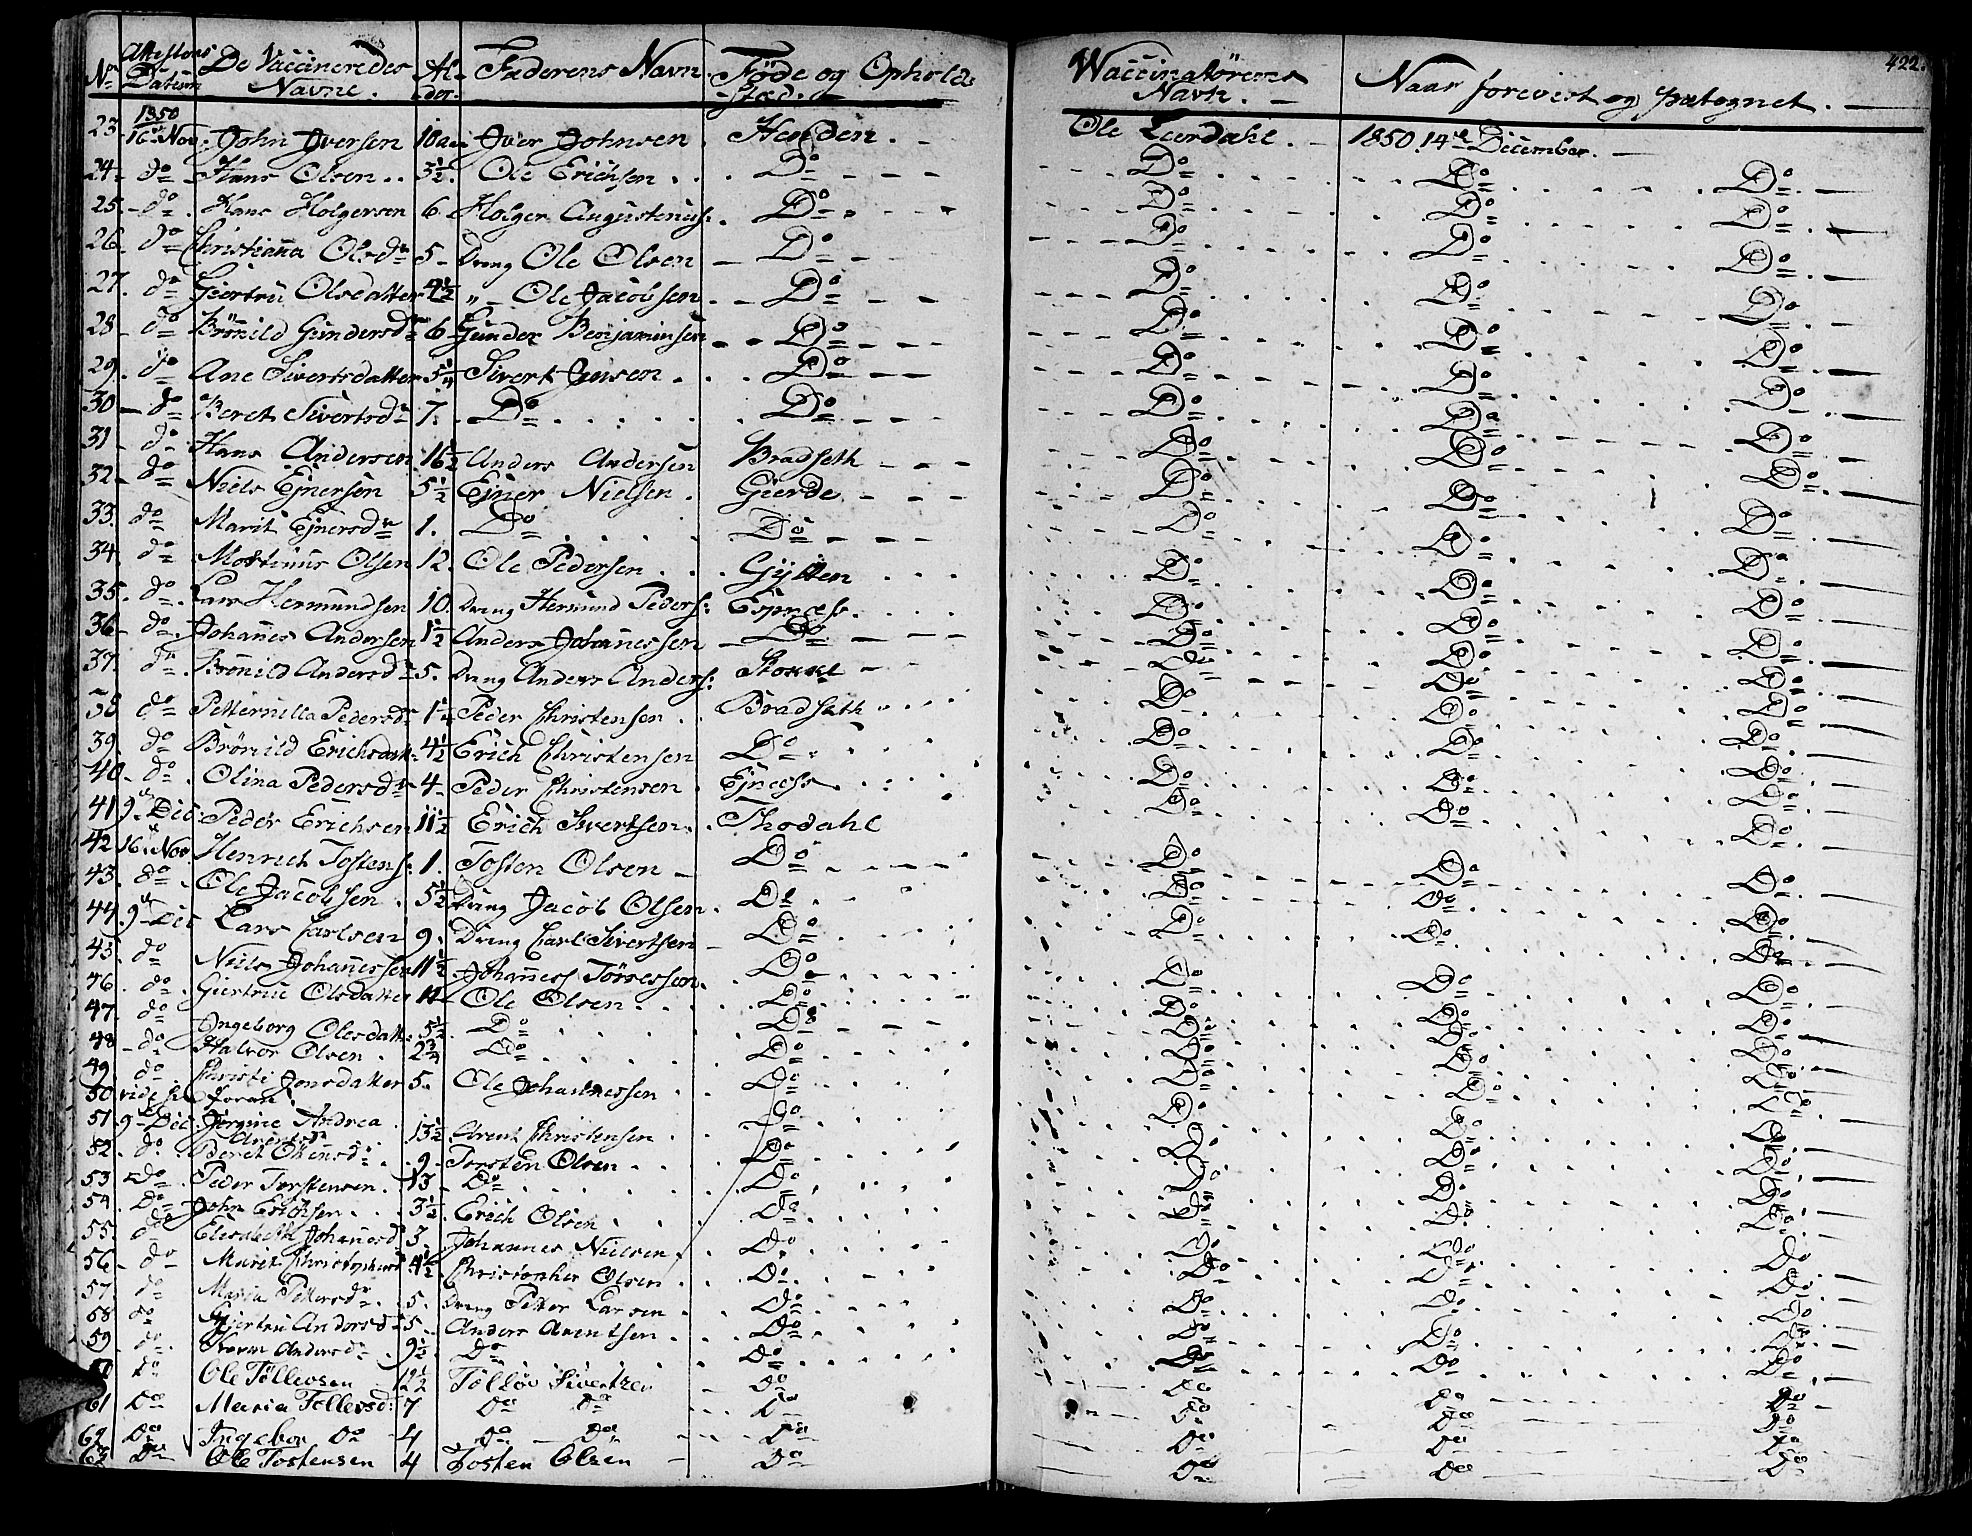 422.
No Attestens Datum De Vaccineredes Navne. Al-der. Faderens Navn. Føde og Opholds-Stæd. Waccinatørens Navn. Naar forevist og paategnet.
1850
23 16de Nov. John Iversen 10 Iver Johnsen Henden. Ole Leerdahl. 1850. 14de December.
24 do Hans Olsen 3½ Ole Erichsen Do Do Do Do
25. do Hans Holgersen 6. Holger Augustinus: Do Do Do Do
26. do Christianna Olsdr 5 Dreng Ole Olsen Do Do Do Do
27. do Giertru Olsdatter 4½ „ Ole Jacobsen Do Do Do Do
28 do Brønild Gundersdr 6 Gunder Benjaminsen Do Do Do Do
29. do Ane Sivertsdatter 5¼ Sivert Jensen Do Do Do Do
30 do Beret Sivertsdr 7. Do Do Do Do Do
31 do Hans Andersen 16½ Anders Andersen Bradseth Do Do Do
32 do Niels Ejnersen 5½ Ejner Nielsen Gierde Do Do Do
33. do Marit Ejnersdr 1. Do Do Do Do Do
34. do Mortinus Olsen 12. Ole Pedersen Do Do Do
35. do Lars Hermundsen 10. Dreng Hermund Peders: Espness Do Do Do
36 do Johannes Andersen 1½ Anders Johannessen Do Do Do Do
37. do Brønild Andersdr 5. Dreng Anders Anders: Stokke Do Do Do
38 do Petternilla Pedersdr 1¼ Peder Christensen Bradseth Do Do Do
39. do Brønild Erichsdatt: 4½ Erich Christensen Do Do Do Do
40 do Olina Pedersdr 4 Peder Christensen Ejness Do Do Do
41 9de Dec Peder Erichsen 11½ Erich Sivertsen Thodahl Do Do Do
42 16de Nov Henrich Tostens: 1. Tosten Olsen Do Do Do Do
43. do Ole Jacobsen 5½ Dreng Jacob Olsen Do Do Do Do
44. 9de Dec Lars Carlsen 9. Dreng Carl Sivertsen Do Do Do Do
45. do Niels Johannessen 11½ Johanness Do Do Do Do
46. do Giertrue Olsdatter Ole Olsen Do Do Do Do
47. do Ingeborg Olesdatt: 5½ Do Do Do Do Do
48 do Halvor Olsen 2¾ Do Do Do Do Do
49. do Christi Jonsdatter 5. Ole Johannessen Do Do Do Do
50
51. 9de Dec Jørgine Andrea Arentsdr 13½ Arent Christensen Do Do Do Do
52. do Beret 9 Torsten Olsen Do Do Do Do
53 Do Peder Torstensen 13 Do Do Do Do Do
54. Do John Erichsen 3½ Erich Olsen Do Do Do Do
55. do Elisabeth Johannesd 3. Johannes Nielsen Do Do Do Do
56 do Marit 4½ Christopher Olsen Do Do Do Do
57. do Maria Pettersdr 5. Dreng Petter Larsen Do Do Do Do
58 do Gjertru Andersd 5. Anders Arentsen Do Do Do Do
59. do Andersdr 9½ Do Do Do Do Do
do Ole Tøllevsen 12½ Tølløv Sivertsen Do Do Do Do
61 Do Maria Tøllevsd: 7 Do Do Do Do Do Do
62 Do Ingebor Do 4 Do Do Do Do Do Do
63 Do Ole Tostensen 4 Tosten Olsen Do Do Do Do